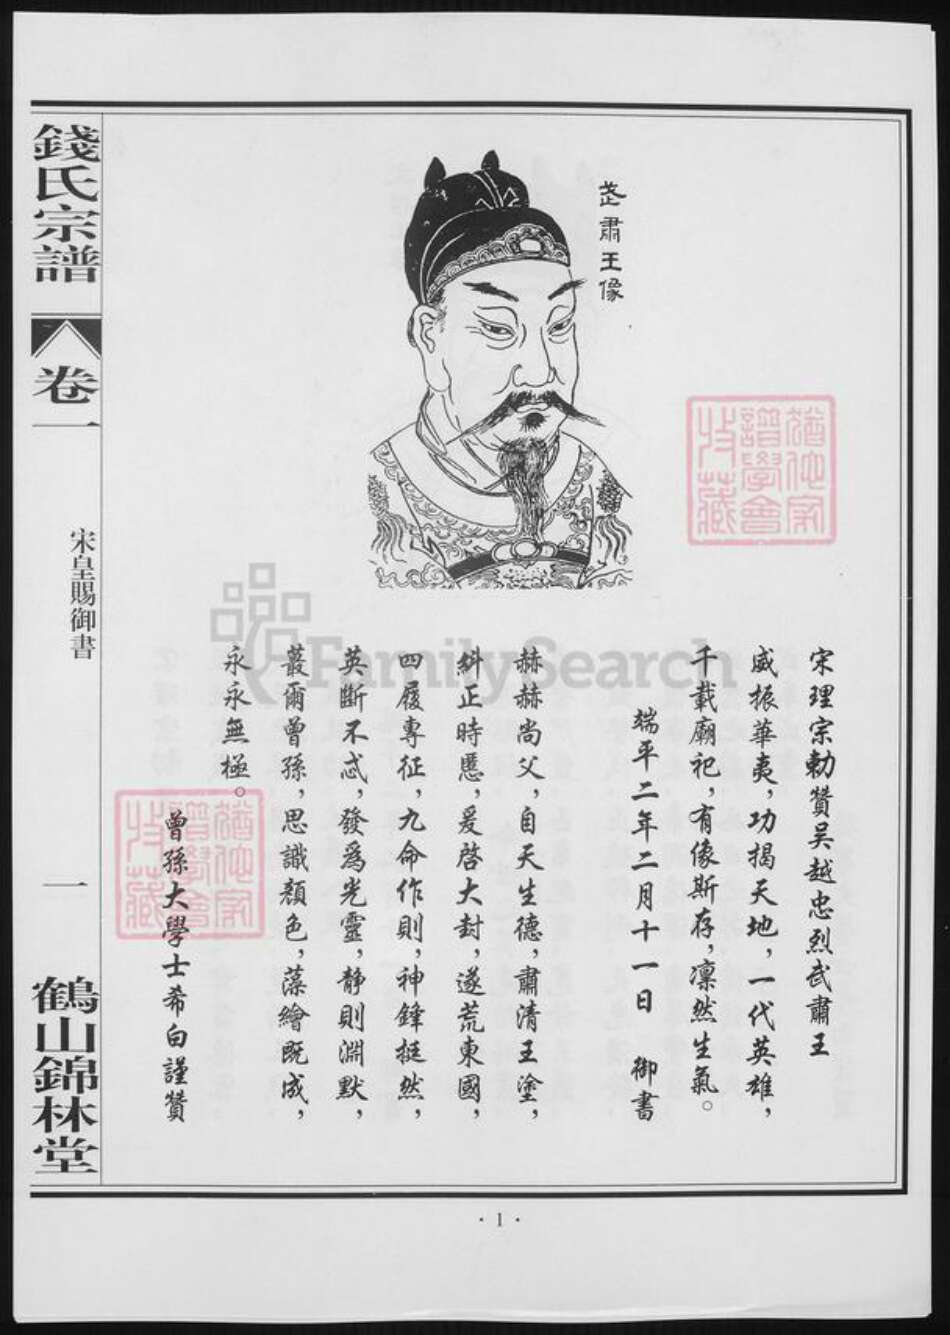 錢氏宗譜
卷一
宋皇賜御書
一
鶴山錦林堂
武肅王像
宋理宗勅贊吳越忠烈武肅王
威振華夷，功揭天地，一代英雄，
千載廟祀，有像斯存，凜然生氣。
端平二年二月十一日 御書
赫赫尚父，自天生德，肅清王塗，
糾正時慝，爰啓大封，遂荒東國，
四履專征，九命作則，神鋒挺然，
英斷不忒，發爲光靈，靜則淵默，
蕞爾曾孫，思識顏色，藻繪既成，
永永無極。
曾孫大學士希白謹贊
猶他家
譜學會
收藏
猶他家
譜學會
收藏
FamilySearch
· 1 ·